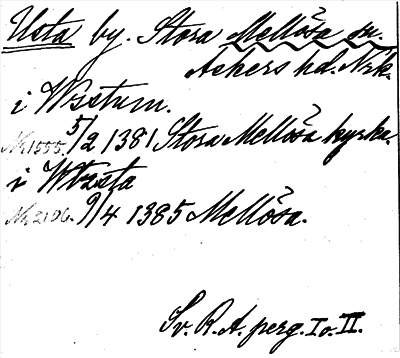 Usta by. Stora Mellösa sn.
Askers hd. Nrk.
i Wsætum.
Nr 1555. 5/2 1381 Stora Mellösa kyrka.
i Wtzsta
Nr 2106. 9/4 1385 Mellösa.
Sv. R. A. perg. I o. II.